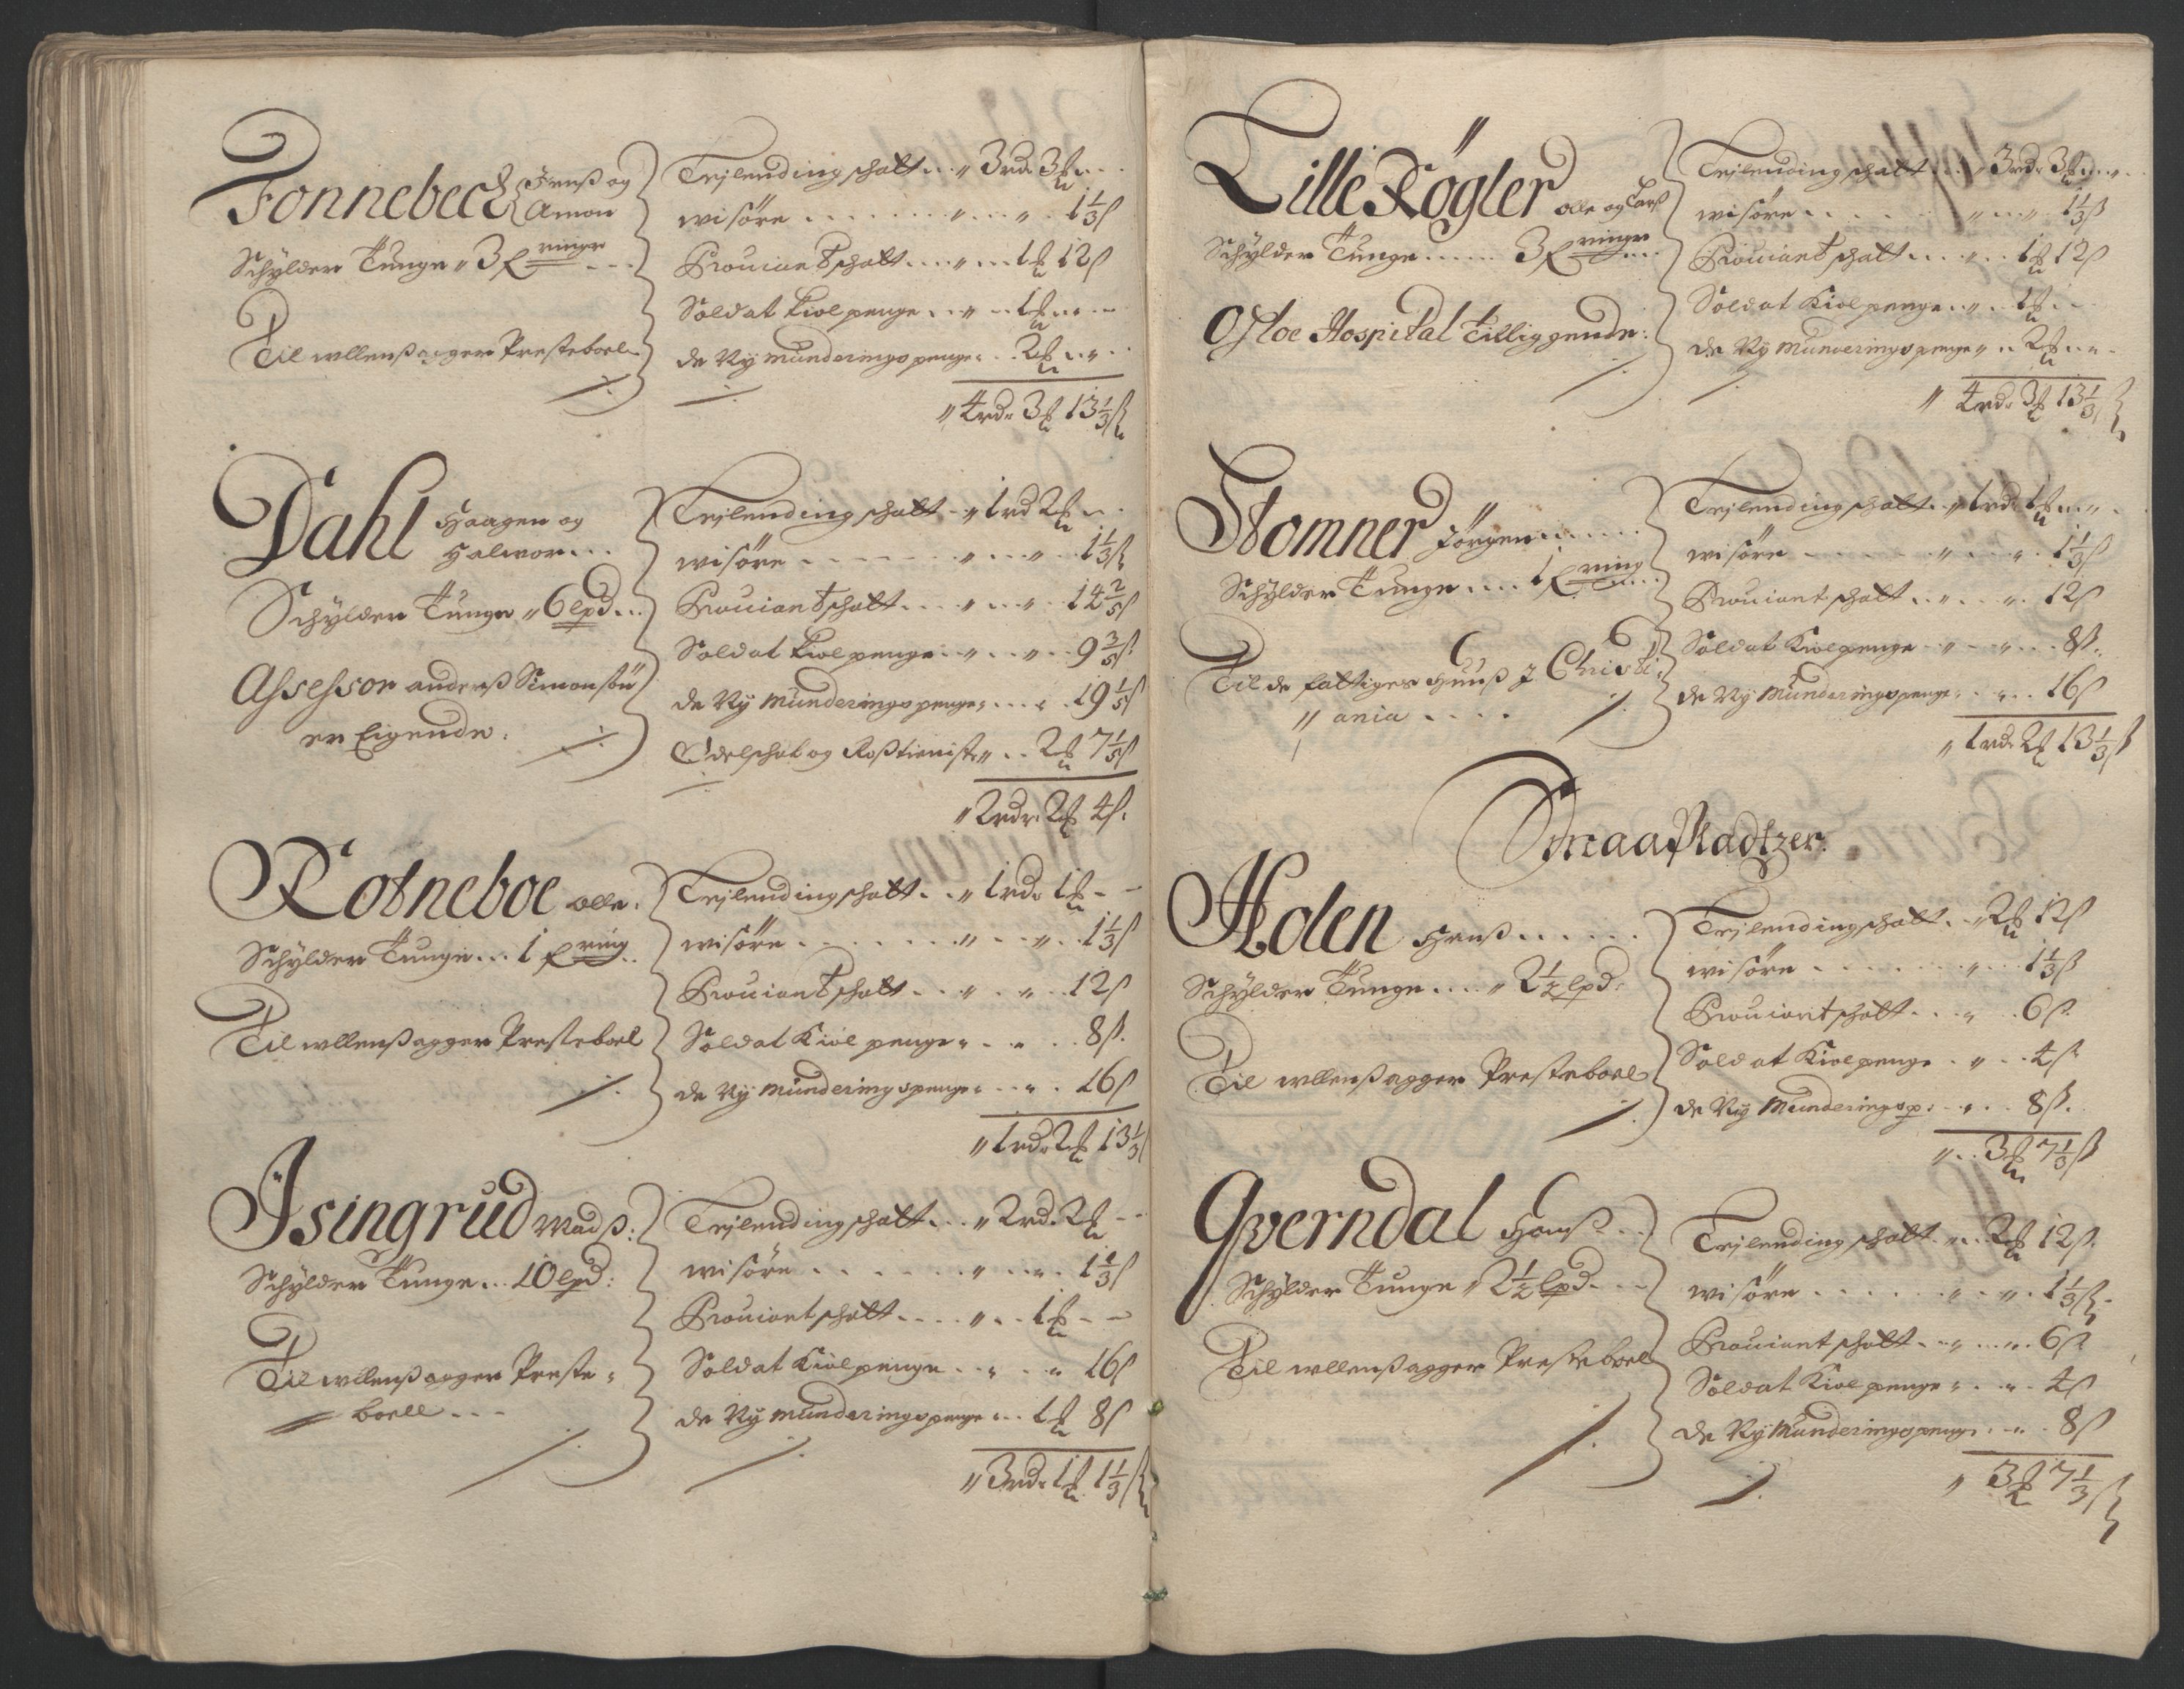 Fonnebeck Jenß og
Amon
Schylder Tunge 3 f ringer
Til wllenßager Presteboel
Leilending schatt 3 rd 3 ß
wisöre 1 1/3 ß
Prouiantschatt 1 12 ß
Soldat kiolpenge 1
de Ny munderings penge 2
4 rd 3 13 1/3 ß
Dahl Haagen og
Halwor
Schylder Tunge 6 lpd
Assessor anderß Simonsøn
er Eigende
Leilending schatt 1 rd 2
wisöre 1 1/3 ß
Prouiantschatt 14 2/5 ß
Soldat kiolpenge 9 3/5 ß
de Ny munderings penge 19 1/5 ß
Odelschat og Roßtieniste 2 7 1/5 ß
2 rdr 2 4 ß
Rotneboe olle
Schylder Tunge 1 f ring
Til wllenßagger Presteboel
Leilending schatt 1 rd 1
wisöre 1 1/3 ß
Prouiantschatt 12 ß
Soldat Kiol penge 8 ß
de Ny munderings penge 16 ß
1 rd 2 13 1/3
Isingrud Madß
Schylder Tunge 10 lpd
Til wllenßagger Preste
boell
Leilending schatt 2 rd 2
wisöre 1 1/3 ß
Prouiantschatt 1
Soldat Kiolpenge 16 ß
de Ny munderings penge 1 8 ß
3 rd 1 1 1/3 ß
Lille Røgler olle og Larß
Schylder Tunge 3 f ringer
Osloe Hospital tilliggende
Leilending schatt 3 rd 3
wisöre 1 1/3 ß
Prouiantschatt 1 12 ß
Soldat Kiolpenge 1
de Ny munderings penge 2
4 rd 3 13 1/3 ß
Stomner Jörgen
Schylder Tunge 1 f ring
Til de fattiges Huuß J Christi
ania
Leilending schatt 1 rd 1
wisöre 1 1/3 ß
Prouiantschatt 12 ß
Soldat Kiolpenge 8 ß
de Ny munderings penge 16 ß
1 rd 2 13 1/3 ß
Smaa Pladtzer
Holen Hanß
Schylder Tunge 2 1/2 lpd
Til wllenßagger Presteboel
Leilending schatt 2 12 ß
wisöre 1 1/3 ß
Prouiantschatt 6 ß
Soldat Kiolpenge 4 ß
de Ny Munderings p 8 ß
3 7 1/3 ß
Qverndal Hanß
Schylder Tunge 2 1/2 lpd
Til wllenßagger Presteboel
Leilending schatt 2 12 ß
wisöre 1 1/3 ß
Prouiantschatt 6 ß
Soldat Kiol penge 4 ß
de Ny Munderings penge 8 ß
3 7 1/3 ß